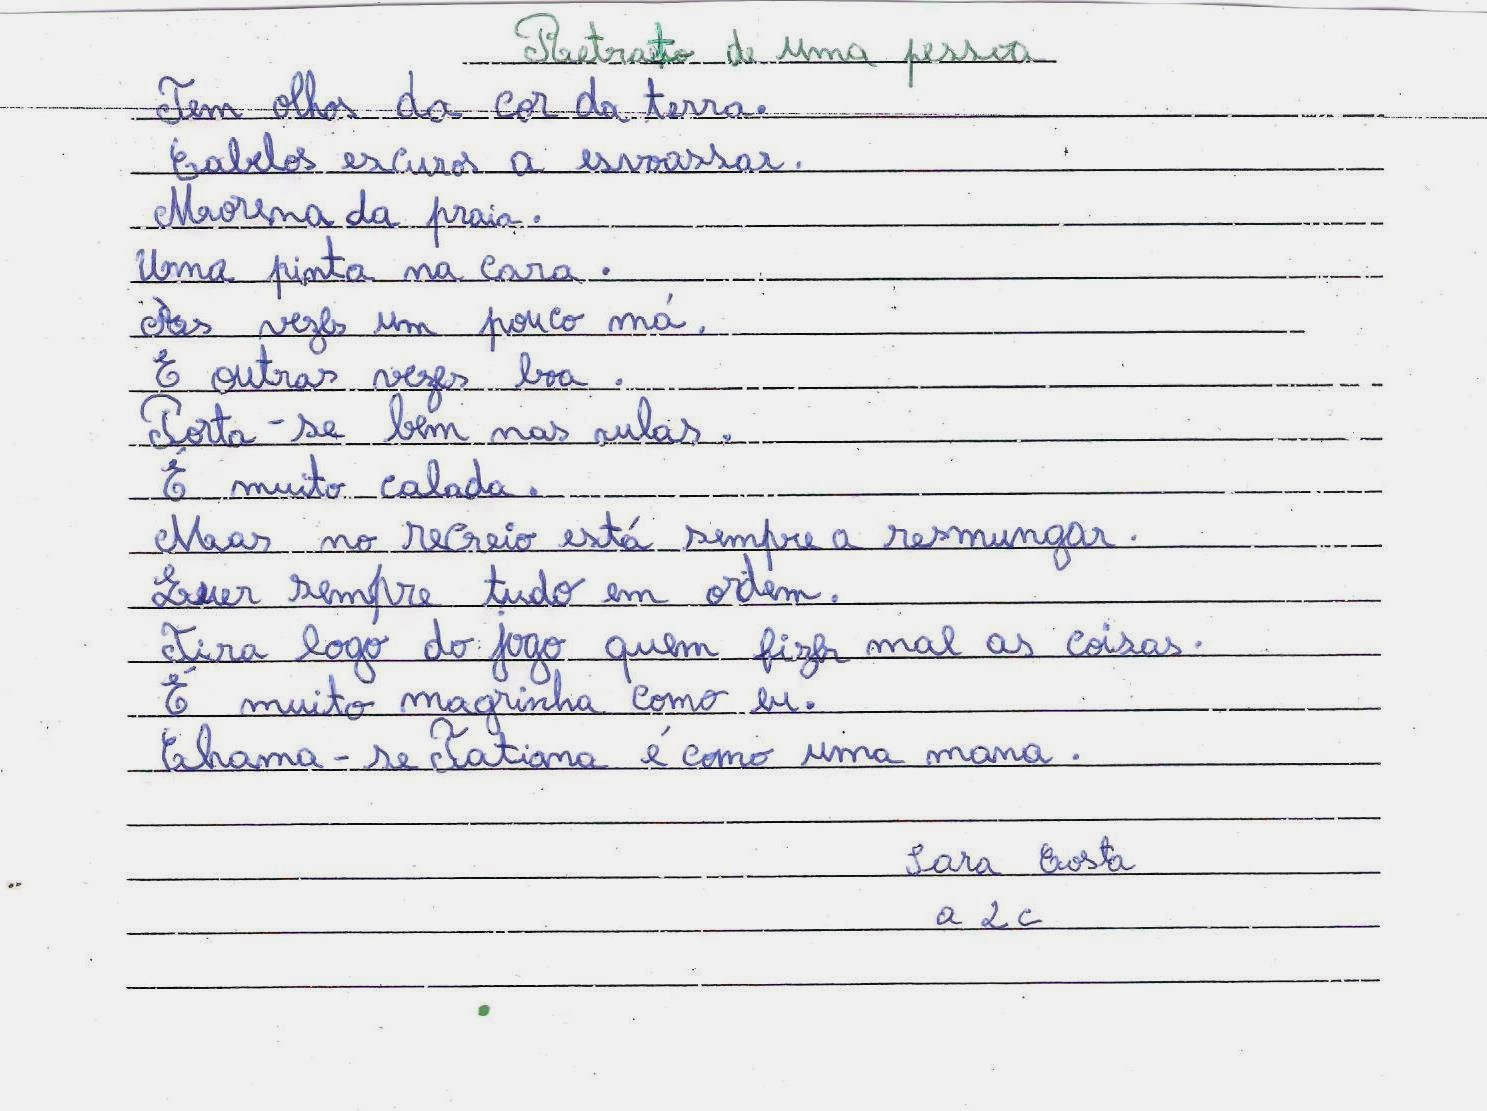 Retrato de uma pessoa
Tem olhos da cor da terra.
Cabelos escuros a esvoassar.
Morena da praia.
Uma pinta na cara.
Às vezes um pouco má.
E outras vezes boa.
Porta-se bem nas aulas.
É muito calada.
Mas no recreio está sempre a resmungar.
Quer sempre tudo em ordem.
Tira logo do jogo quem fizer mal as coisas.
É muito magrinha como eu.
Chama-se Tatiana é como uma mana.
Sara Costa
a 2 c